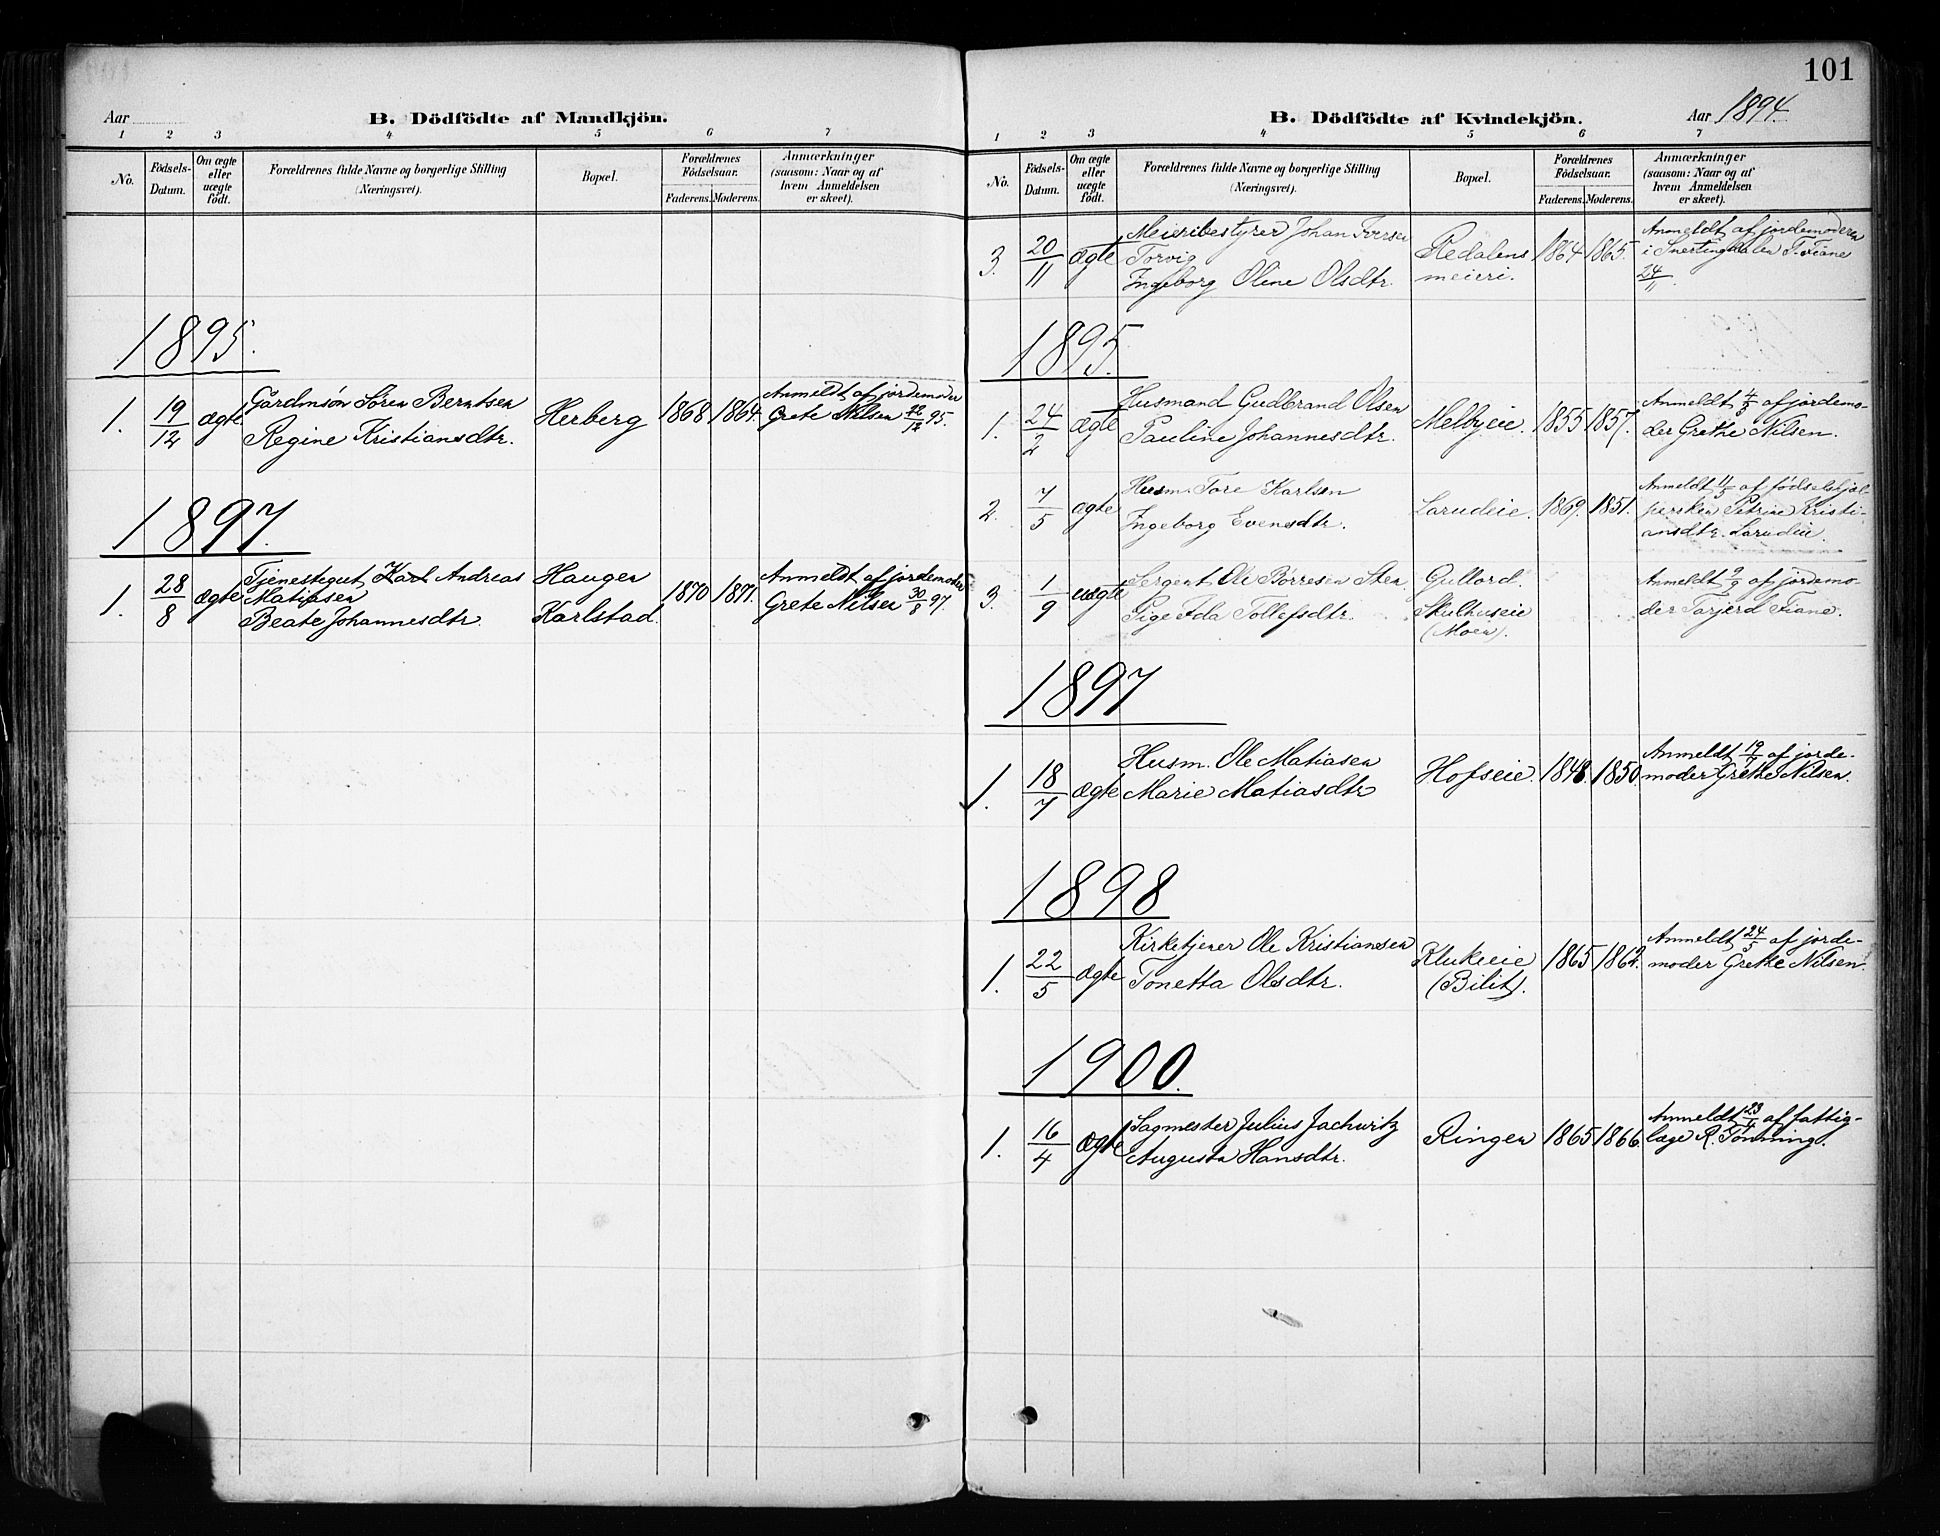 Aar
B. Dödfödte af Mandkjön.
1 2 3 4 5 6 7
No.
Födsels-
Datum.
Om ægte
eller
uægte
födt.
Forældrenes fulde Navne og borgerlige Stilling
(Næringsvei).
Bopæl.
Forældrenes
Födselsaar.
Faderens. Moderens.
Anmærkninger
(saasom: Naar og af
hvem Anmeldelsen
er skeet).
1895.
1. 19/12 ægte
Gårdmsøn Søren Berntsen
Regine Kristiansdtr.
Herberg
1868 1864.
Anmeldt af jordemoder
Grete Nilsen 22/12 95.
1897.
1. 28/8 ægte
Tjenestegut Karl Andreas
Matiasen
Beate Johannesdtr.
Haugen
Karlstad.
1870 1871.
Anmeldt af jordemoder
Grete Nilsen 30/8 97.
101
B. Dödfödte af Kvindekjön.
Aar 1894.
1 2 3 4 5 6 7
No.
Födsels-
Datum.
Om ægte
eller
uægte
födt.
Forældrenes fulde Navne og borgerlige Stilling
(Næringsvei).
Bopæl.
Forældrenes
Födselsaar.
Faderens. Moderens.
Anmærkninger
(saasom: Naar og af
hvem Anmeldelsen
er skeet).
3. 20/11 ægte
Meieribestyrer Johan Iversen
Torvig
Ingeborg Oline Olsdtr.
Redalens
meieri.
1864 1865.
Anmeldt af jordemoderen
i Snertingdalen T. Fiane
24/11.
1895.
1. 24/2 ægte
Husmand Gudbrand Olsen
Pauline Johannesdtr.
Melbyeie.
1855 1857.
Anmeldt 4/3 af jordemo-
der Grethe Nilsen.
2. 7/5 ægte
Husm. Tore Karlsen
Ingeborg Evensdtr.
Larudeie.
1869. 1851.
Anmeldt 11/5 af fødselshjæl-
persken Petrine Kristi-
ansdtr. Larudeie.
3. 1/9 uægte
Sergent Ole Børresen Sten
Pige Ida Tollefsdtr.
Gullord.
Skulhuseie
(Moen).
Anmeldt 2/9 af jordemo-
der Tarjerd Fiane.
1897
1. 18/7 ægte
Husm. Ole Matiasen
Marie Matiasdtr
Hofseie.
1848. 1850.
Anmeldt 19/7 af jorde-
moder Grethe Nilsen.
1898
1. 22/5 ægte
Kirketjener Ole Kristiansen
Tonetta Olsdtr.
Klukeie
(Bilit).
1865
Anmeldt 24/5 af jorde-
moder Grethe Nilsen.
1900.
1. 16/4 ægte
Sagmester Julius Jachwitz
Augusta Hansdtr.
Ringen
1865 1866.
Anmeldt 23/4 af fattig-
læge R. Tønning.